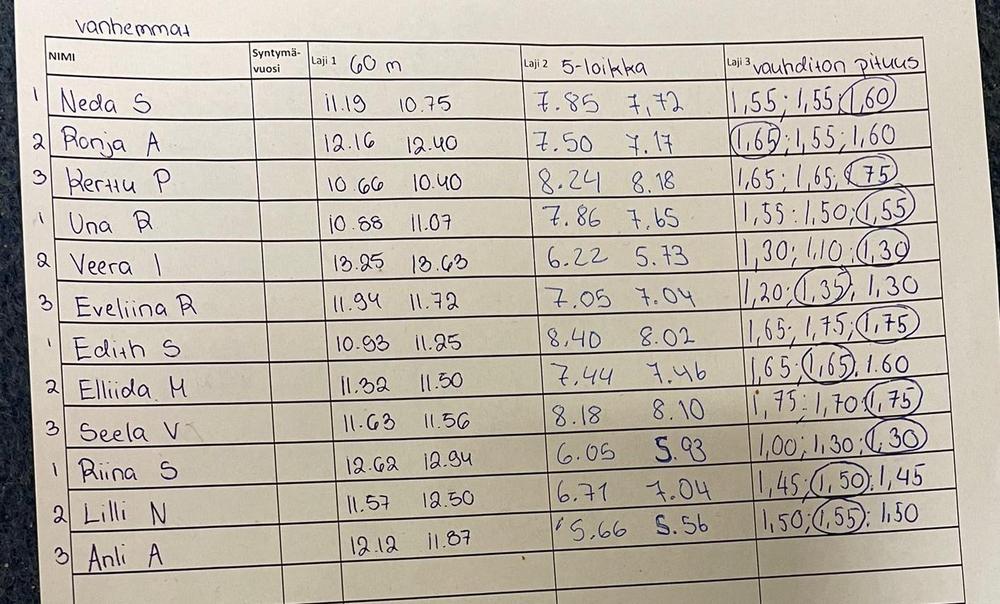 vanhemmat
NIMI Syntymä-vuosi Laji 1 60 m Laji 2 5-loikka Laji 3 vauhditon pituus
1 Neda S 11.19 10.75 7.85 7,72 1,55; 1,55; 1,60
2 Ronja A 12.16 12.40 7.50 7.17 1,65; 1,55; 1,60
3 Kerttu P 10.66 10.40 8.24 8.18 1,65; 1,65; 1,75
1 Una R 10.88 11.07 7.86 7,65 1,55; 1,50; 1,55
2 Veera I 13.25 13.63 6.22 5.73 1,30; 1,10; 1,30
3 Eveliina R 11.94 11.72 7.05 7.04 1,20; 1,35; 1,30
1 Edith S 10.93 11.25 8.40 8.02 1,65; 1,75; 1,75
2 Elliida M 11.32 11.50 7.44 7.46 1,65; 1,65; 1.60
3 Seela V 11.63 11.56 8.18 8.10 1,75; 1,70; 1,75
1 Riina S 12.62 12.94 6.05 5.93 1,00; 1,30; 1,30
2 Lilli N 11.57 12.50 6.71 7.04 1,45; 1,50; 1,45
3 Anli A 12.12 11.87 5.66 5.56 1,50; 1,55; 1,50